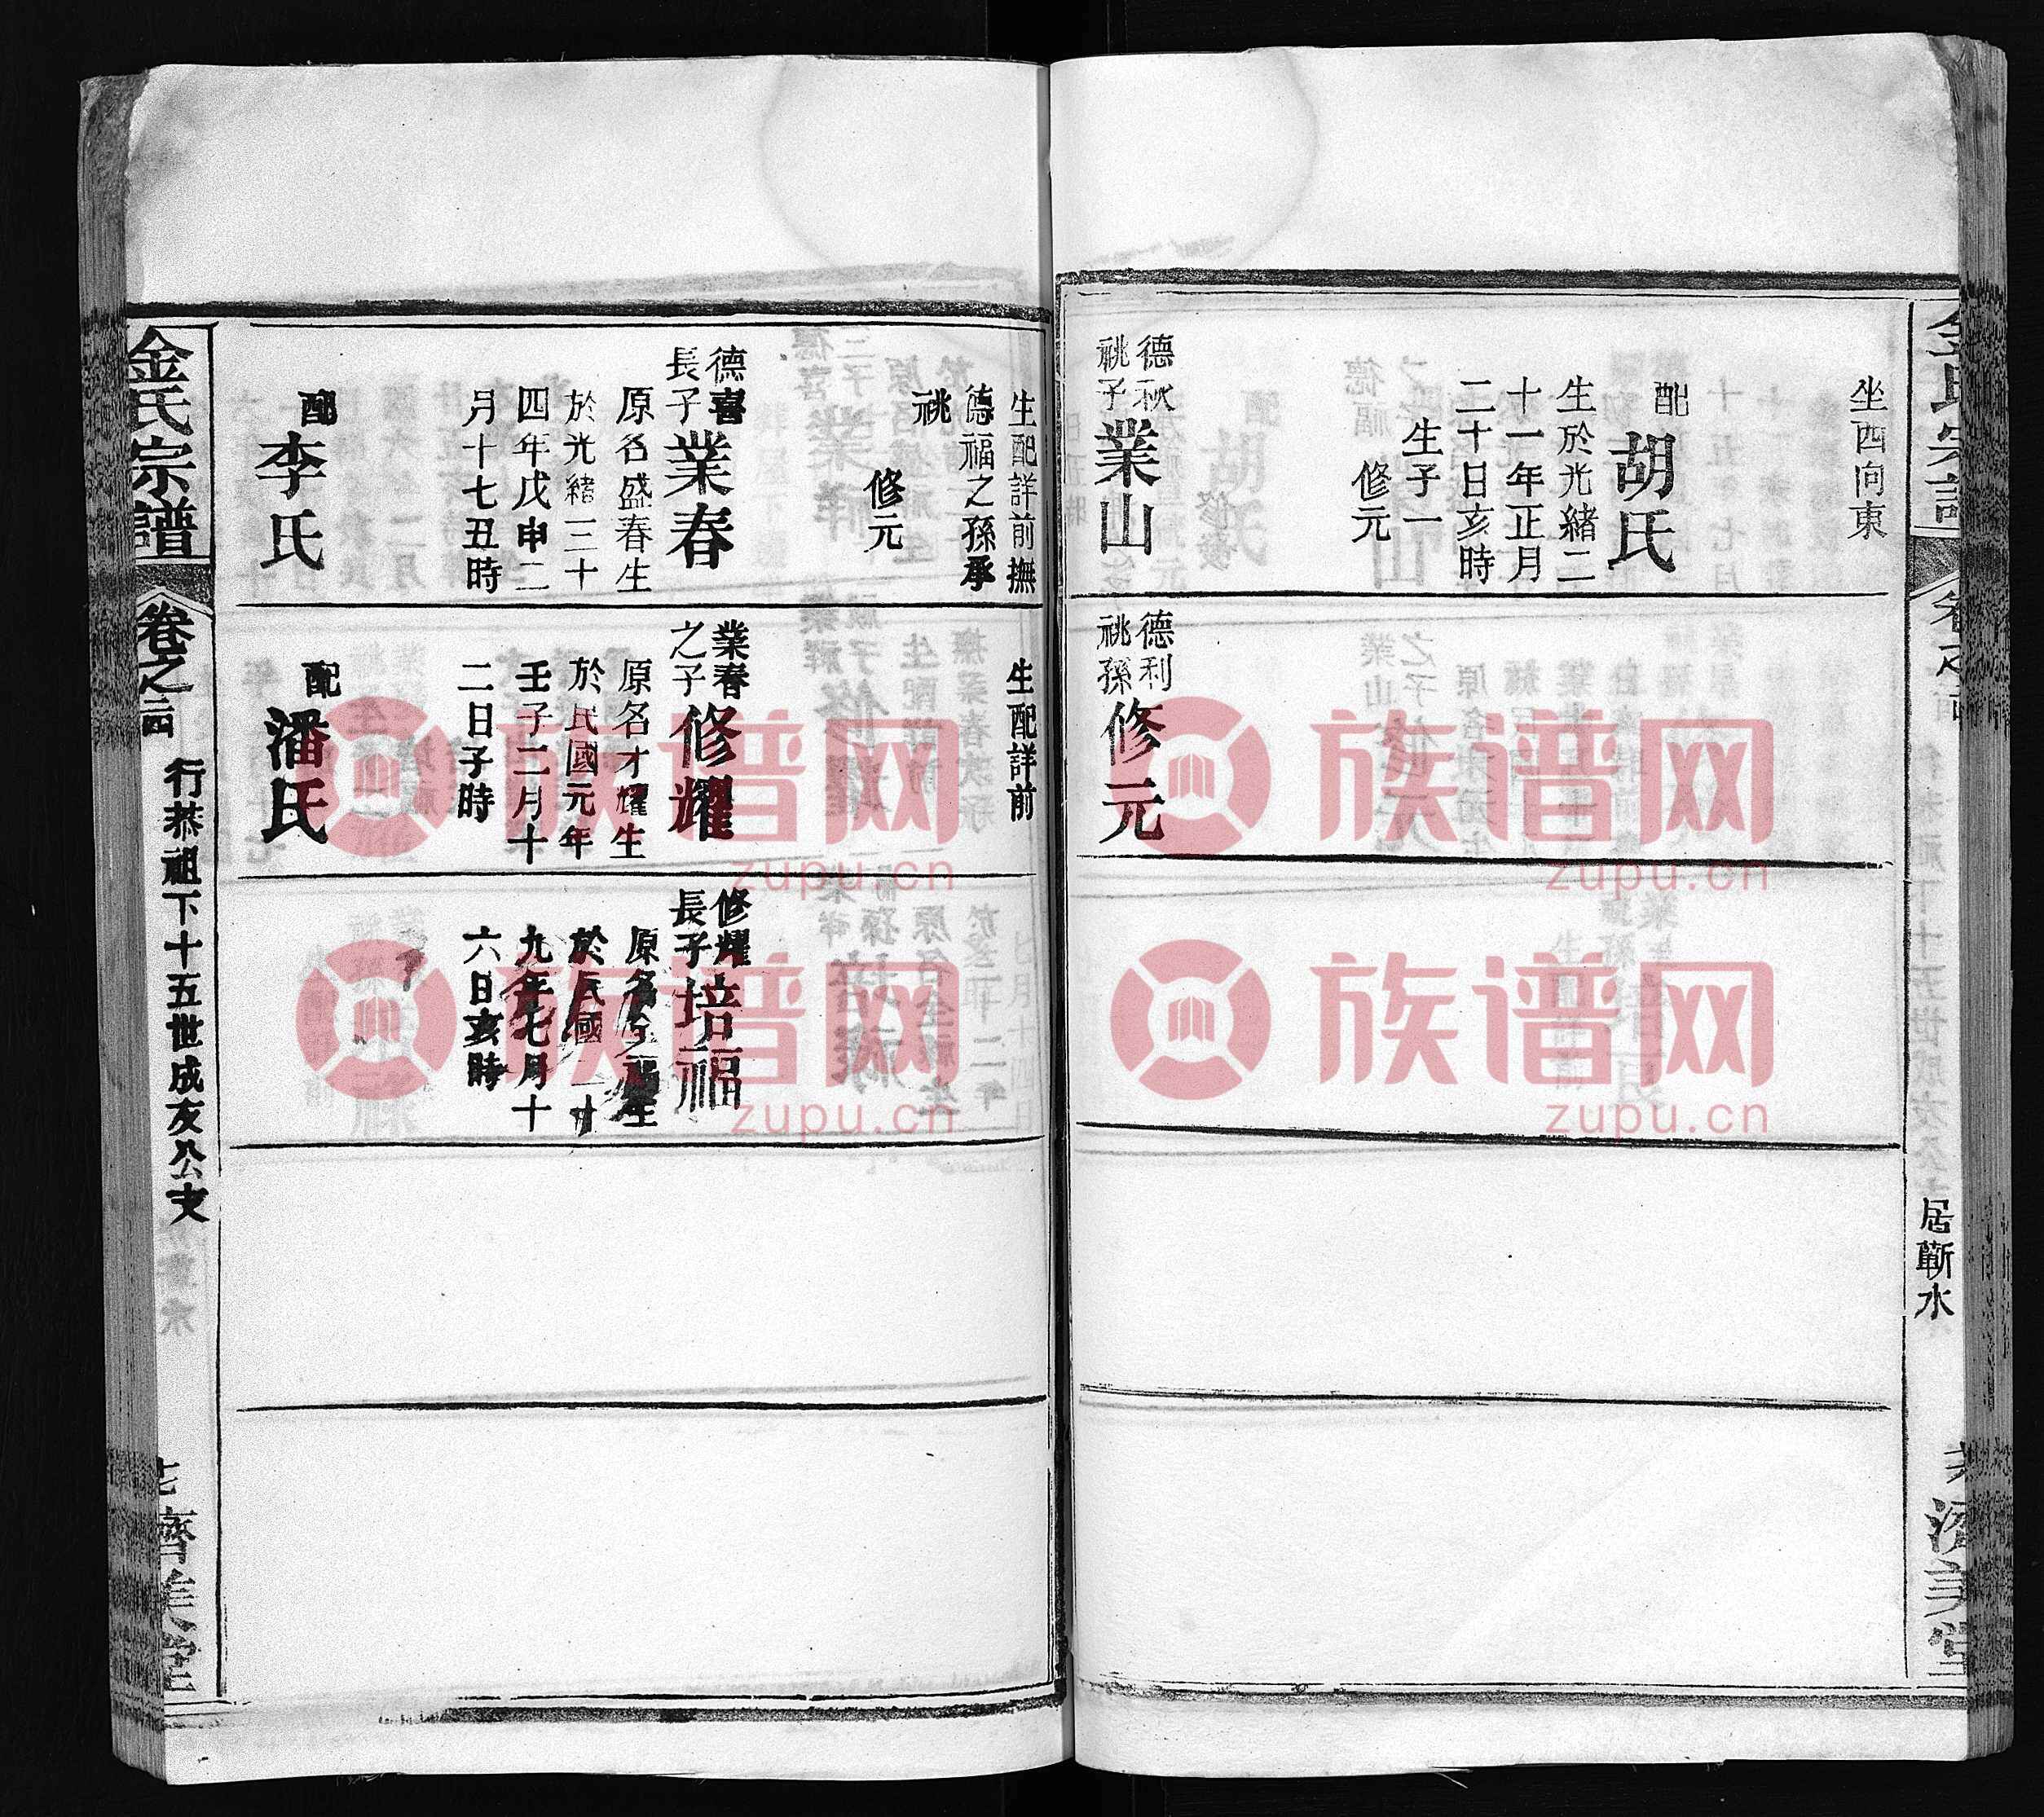 居蘄水
坐酉向東
配
胡氏
生於光緒二
十一年正月
二十日亥時
生子一
修元
德秋
祧子
業山
德利
祧孫
修元
生配詳前撫
德福之孫承
祧
修元
德喜
長子
業春
原名盛春生
於光緒三十
四年戊申二
月十七丑時
配
李氏
生配詳前
業春
之子
修耀
原名才耀生
於民國元年
壬子二月十
二日子時
配
潘氏
修耀
長子
培福
於民國二十
九年七月十
六日亥時
金氏宗譜
卷之
行恭祖下十五世成友公支
濟美堂
族谱网
zupu.cn
族谱网
zupu.cn
族谱网
zupu.cn
族谱网
zupu.cn